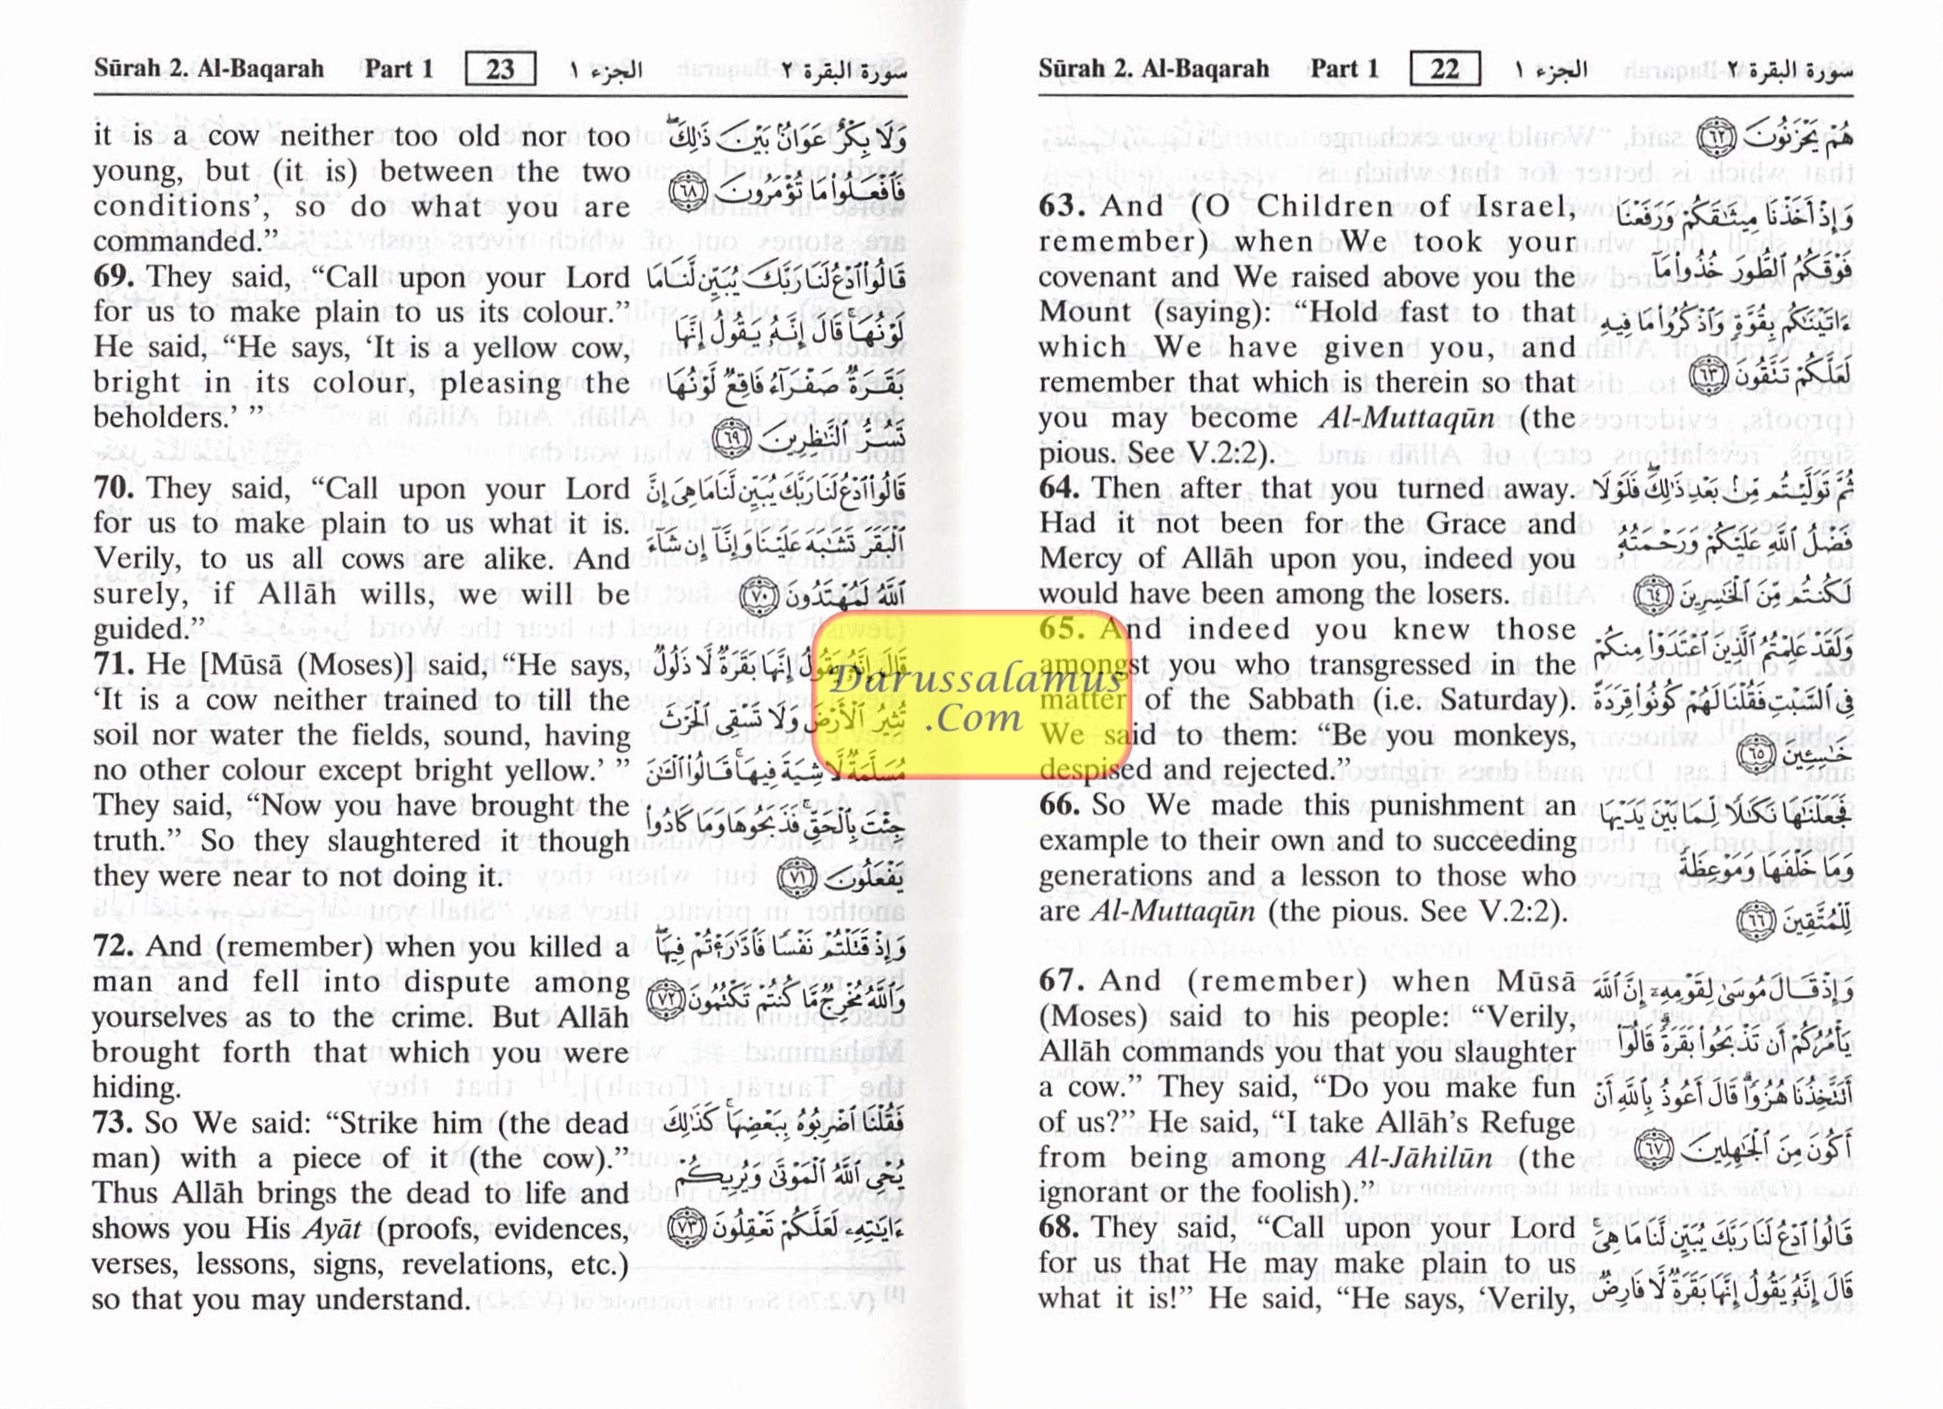 Sūrah 2. Al-Baqarah Part 1 22 الجزء ١ سورة البقرة ٢
هُمْ يَحْزَنُونَ ﴿٦٢﴾
63. And (O Children of Israel,
remember) when We took your
covenant and We raised above you the
Mount (saying): “Hold fast to that
which We have given you, and
remember that which is therein so that
you may become Al-Muttaqūn (the
pious. See V.2:2).
وَإِذْ أَخَذْنَا مِيثَٰقَكُمْ وَرَفَعْنَا
فَوْقَكُمُ ٱلطُّورَ خُذُوا۟ مَآ
ءَاتَيْنَٰكُم بِقُوَّةٍ وَٱذْكُرُوا۟ مَا فِيهِ
لَعَلَّكُمْ تَتَّقُونَ ﴿٦٣﴾
64. Then after that you turned away.
Had it not been for the Grace and
Mercy of Allāh upon you, indeed you
would have been among the losers.
ثُمَّ تَوَلَّيْتُم مِّنۢ بَعْدِ ذَٰلِكَ ۖ فَلَوْلَا
فَضْلُ ٱللَّهِ عَلَيْكُمْ وَرَحْمَتُهُۥ
لَكُنتُم مِّنَ ٱلْخَٰسِرِينَ ﴿٦٤﴾
65. And indeed you knew those
amongst you who transgressed in the
matter of the Sabbath (i.e. Saturday).
We said to them: “Be you monkeys,
despised and rejected.”
وَلَقَدْ عَلِمْتُمُ ٱلَّذِينَ ٱعْتَدَوْا۟ مِنكُمْ
فِى ٱلسَّبْتِ فَقُلْنَا لَهُمْ كُونُوا۟ قِرَدَةً
خَٰسِـِٔينَ ﴿٦٥﴾
66. So We made this punishment an
example to their own and to succeeding
generations and a lesson to those who
are Al-Muttaqūn (the pious. See V.2:2).
فَجَعَلْنَٰهَا نَكَٰلًا لِّمَا بَيْنَ يَدَيْهَا
وَمَا خَلْفَهَا وَمَوْعِظَةً
لِّلْمُتَّقِينَ ﴿٦٦﴾
67. And (remember) when Mūsā
(Moses) said to his people: “Verily,
Allāh commands you that you slaughter
a cow.” They said, “Do you make fun
of us?” He said, “I take Allāh’s Refuge
from being among Al-Jāhilūn (the
ignorant or the foolish).”
وَإِذْ قَالَ مُوسَىٰ لِقَوْمِهِۦٓ إِنَّ ٱللَّهَ
يَأْمُرُكُمْ أَن تَذْبَحُوا۟ بَقَرَةً ۖ قَالُوٓا۟
أَتَتَّخِذُنَا هُزُوًا ۖ قَالَ أَعُوذُ بِٱللَّهِ أَنْ
أَكُونَ مِنَ ٱلْجَٰهِلِينَ ﴿٦٧﴾
68. They said, “Call upon your Lord
for us that He may make plain to us
what it is!” He said, “He says, ‘Verily,
قَالُوا۟ ٱدْعُ لَنَا رَبَّكَ يُبَيِّن لَّنَا مَا هِىَ ۚ
قَالَ إِنَّهُۥ يَقُولُ إِنَّهَا بَقَرَةٌ لَّا فَارِضٌ
Sūrah 2. Al-Baqarah Part 1 23 الجزء ١ سورة البقرة ٢
it is a cow neither too old nor too
young, but (it is) between the two
conditions’, so do what you are
commanded.”
وَلَا بِكْرٌ عَوَانٌۢ بَيْنَ ذَٰلِكَ ۖ
فَٱفْعَلُوا۟ مَا تُؤْمَرُونَ ﴿٦٨﴾
69. They said, “Call upon your Lord
for us to make plain to us its colour.”
He said, “He says, ‘It is a yellow cow,
bright in its colour, pleasing the
beholders.’ ”
قَالُوا۟ ٱدْعُ لَنَا رَبَّكَ يُبَيِّن لَّنَا مَا
لَوْنُهَا ۚ قَالَ إِنَّهُۥ يَقُولُ إِنَّهَا
بَقَرَةٌ صَفْرَآءُ فَاقِعٌ لَّوْنُهَا
تَسُرُّ ٱلنَّٰظِرِينَ ﴿٦٩﴾
70. They said, “Call upon your Lord
for us to make plain to us what it is.
Verily, to us all cows are alike. And
surely, if Allāh wills, we will be
guided.”
قَالُوا۟ ٱدْعُ لَنَا رَبَّكَ يُبَيِّن لَّنَا مَا هِىَ إِنَّ
ٱلْبَقَرَ تَشَٰبَهَ عَلَيْنَا وَإِنَّآ إِن شَآءَ
ٱللَّهُ لَمُهْتَدُونَ ﴿٧٠﴾
71. He [Mūsā (Moses)] said, “He says,
‘It is a cow neither trained to till the
soil nor water the fields, sound, having
no other colour except bright yellow.’ ”
They said, “Now you have brought the
truth.” So they slaughtered it though
they were near to not doing it.
قَالَ إِنَّهُۥ يَقُولُ إِنَّهَا بَقَرَةٌ لَّا ذَلُولٌ
تُثِيرُ ٱلْأَرْضَ وَلَا تَسْقِى ٱلْحَرْثَ
مُسَلَّمَةٌ لَّا شِيَةَ فِيهَا ۚ قَالُوا۟ ٱلْـَٰٔنَ
جِئْتَ بِٱلْحَقِّ ۚ فَذَبَحُوهَا وَمَا كَادُوا۟
يَفْعَلُونَ ﴿٧١﴾
72. And (remember) when you killed a
man and fell into dispute among
yourselves as to the crime. But Allāh
brought forth that which you were
hiding.
وَإِذْ قَتَلْتُمْ نَفْسًا فَٱدَّٰرَْٰٔتُمْ فِيهَا ۖ
وَٱللَّهُ مُخْرِجٌ مَّا كُنتُمْ تَكْتُمُونَ ﴿٧٢﴾
73. So We said: “Strike him (the dead
man) with a piece of it (the cow).”
Thus Allāh brings the dead to life and
shows you His Ayāt (proofs, evidences,
verses, lessons, signs, revelations, etc.)
so that you may understand.
فَقُلْنَا ٱضْرِبُوهُ بِبَعْضِهَا ۚ كَذَٰلِكَ
يُحْىِ ٱللَّهُ ٱلْمَوْتَىٰ وَيُرِيكُمْ
ءَايَٰتِهِۦ لَعَلَّكُمْ تَعْقِلُونَ ﴿٧٣﴾
Darussalamus
.Com